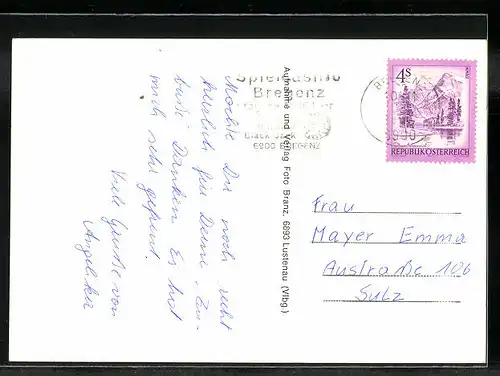 Möchte Dir noch recht
herzlich für Deine Zu-
Danken. Es hat
mich sehr gefreut.
Viele Grüße von
Angelika
Spielcasino
Bregenz
6900 BREGENZ
Aufnahme und Verlag Foto Branz, 6893 Lustenau (Vlbg.)
4S
REPUBLIK ÖSTERREICH
Frau
Mayer Emma
Austraße 106
Sulz